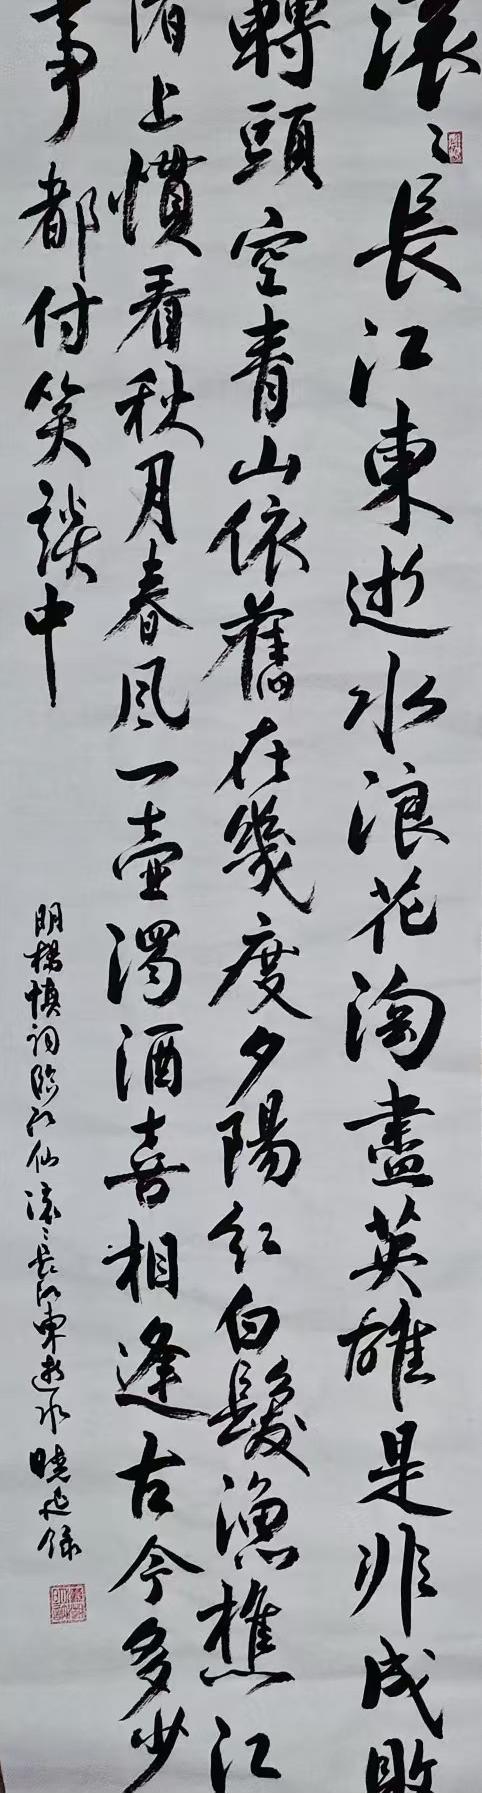 滚〻長江東逝水浪花淘盡英雄是非成敗
轉頭空青山依舊在幾度夕陽紅白髮漁樵江
渚上慣看秋月春風一壺濁酒喜相逢古今多少
事都付笑談中
明楊慎词临江仙滚〻長江東逝水曉延録